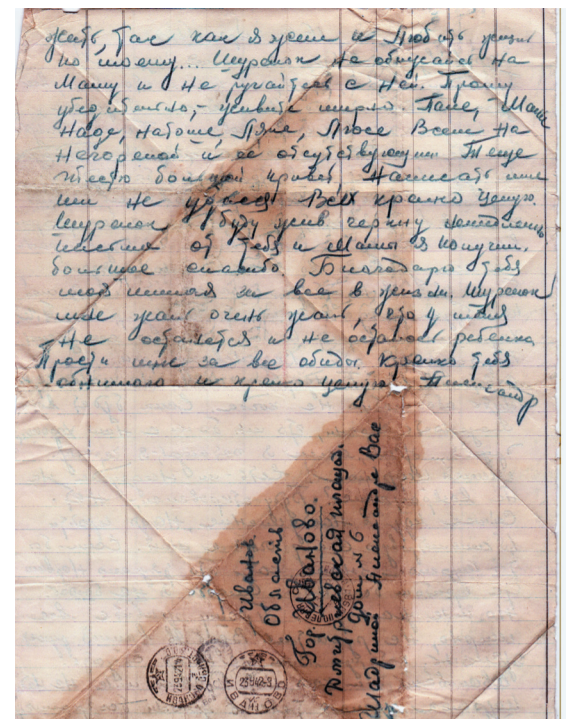 жить, так как я жил и любить жизнь
по моему... Шуренок не обижайся на
Маму и не ругайтесь с ней. Прошу
убедительно, – живите мирно. Тане, Маше
Наде, Наташе, Ляле, Люсе Всем на
Негорелой и ее отсутствующим Теще
Тестю большой привет. Написать им
им не удается Всех крепко целую.
Шуренок буду жив черкну
письма от тебя и Мамы я получил.
большое спасибо. Благодарю тебя
моя милая за все в жизни. Шуренок
мне жаль очень жаль, что у меня
Не останется и не осталось ребенка
Прости мне за все обиды. Крепко тебя
обнимаю и крепко целую Александр
Иванов.
Область
Гор. Иваново.
площад.
Дом № 6
Александре Вас
ИВАНОВО